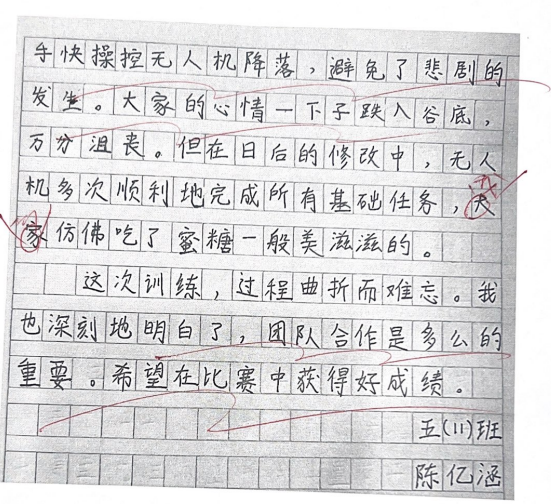 手快操控无人机降落，避免了悲剧的
发生。大家的心情一下子跌入谷底，
万分沮丧。但在日后的修改中，无人
机多次顺利地完成所有基础任务，大
家仿佛吃了蜜糖一般美滋滋的。
这次训练，过程曲折而难忘。我
也深刻地明白了，团队合作是多么的
重要。希望在比赛中获得好成绩。
五(11)班
陈亿涵